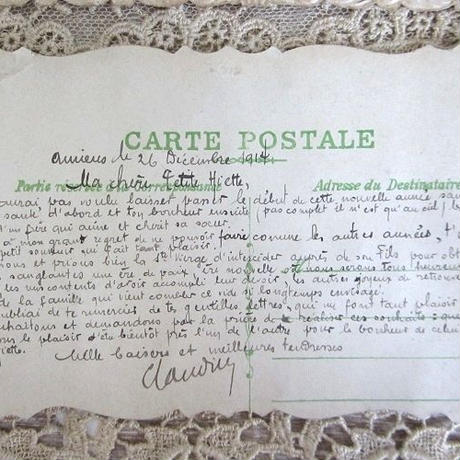 CARTE POSTALE
Amiens le 26 Décembre 1914
Partie réservée à la correspondance
Adresse du Destinataire
Ma chère Petite Hiette,
pas voulu laisser passer le début de cette nouvelle année san
santé d'abord et ton bonheur ensuite (pas complet il n'est qu'au ciel) b
un père qui aime et chérit sa sœur.
à mon grand regret de ne pouvoir faire comme les autres années, t'o
petit souvenir qui fait tant plaisir.
nous et prions bien la Ste Vierge d'intercéder auprès de son Fils pour obte
sanglantes une ère de paix, ère nouvelle où nous serons tous heureux
les uns contents d'avoir accompli leur devoir, les autres joyeux de retrouve
de la famille qui vient combler ce vide si longtemps envisagé.
oubliai de te remercier de tes gentilles lettres, qui font tant plaisir
souhaitons et demandons par la prière de réaliser ces souhaits que
le plaisir d'être bientôt près l'un de l'autre pour le bonheur de celui
Hiette.
Mille baisers et meilleures tendresses